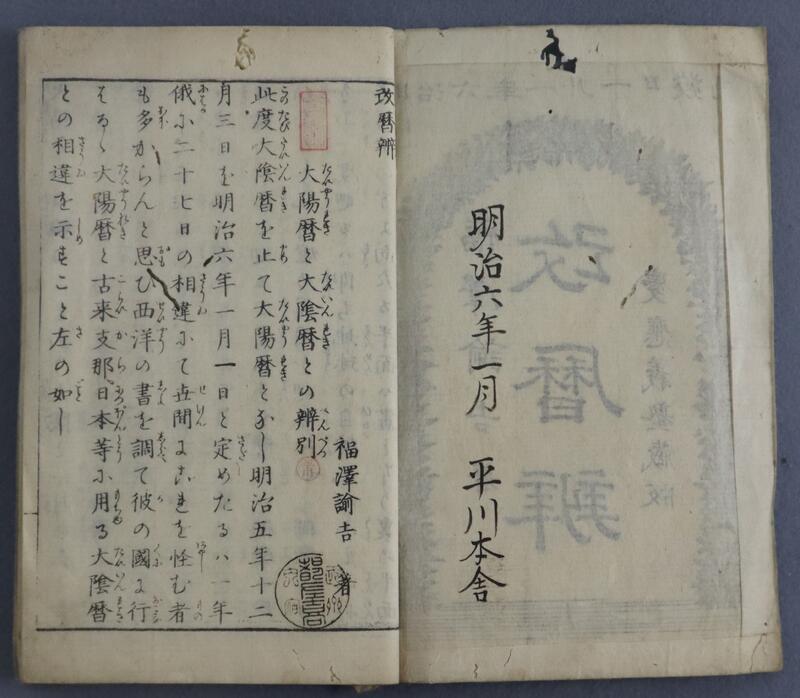 明治六年一月
平川本舎
改暦辨
慶應義塾蔵版
改暦辨
大陽暦と大陰暦との辨別
福澤諭吉 著
此度大陰暦を止て大陽暦となし明治五年十二
月三日を明治六年一月一日と定めたるハ一年
俄に二十七日の相違にて世間にこれを怪む者
も多からんと思ひ西洋の書を調て彼の國に行
はるゝ大陽暦と古来支那日本等に用る大陰暦
との相違を示すこと左の如し